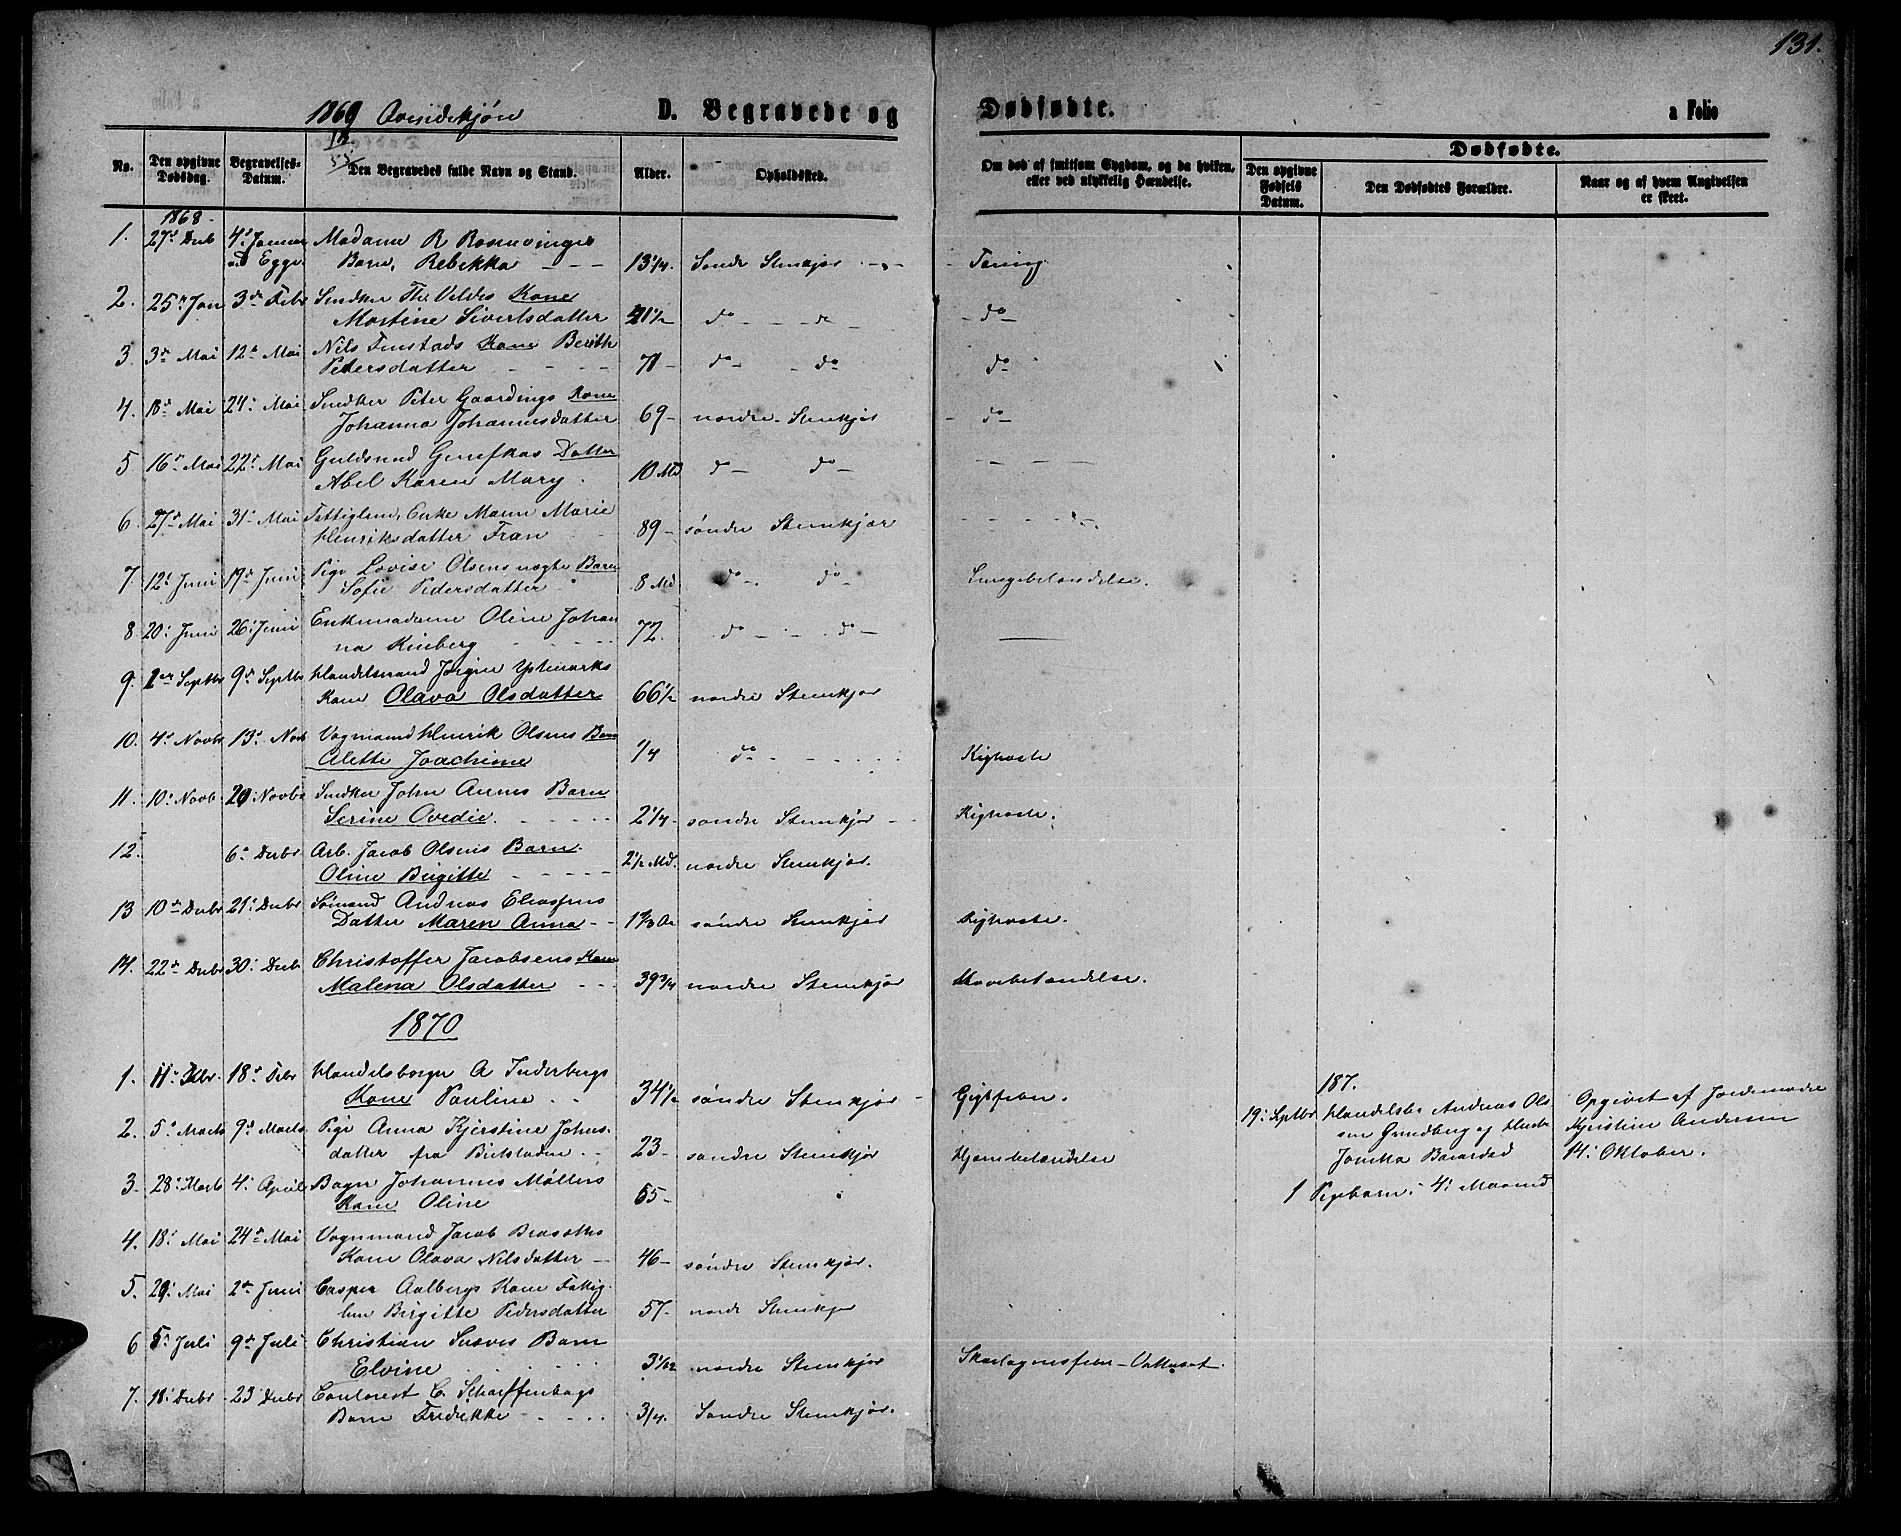 131.
1869 Qvindekjön D. Begravede og Dødfødte. a Folio
No. Den opgivne Dødsdag. Begravelses-Datum. Den Begravedes fulde Navn og Stand. Alder. Opholdssted. Om død af smitsom Sygdom, og da hvilken, eller ved ulykkelig Hændelse. Dødfødte.
Den opgivne Fødsels Datum. Den Dødfødtes Forældre. Naar og af hvem Angivelsen er skeet.
1868
1. 27d Decb 4d Januar Madame R Rosenvinges
Egge Barn, Rebekka 13 1/4. Søndre Stenkjær Tæring
2. 25d Jan 3de Febr Snedker Th. Veldes Kone
Martine Sivertsdatter 41 1/2 do do do
3 3de Mai 12te Mai Nils Finstads Kone Berith
Petersdatter 71 do do do
4. 18de Mai 24d Mai Snedker Peter Gaardings Kone
Johanna Johannesdatter 69 nordre Stenkjær do
5 16de Mai 22d Mai Guldsmed Datter
Abel Karen Mary. 10 Md do do
6. 27d Mai 31d Mai Fattiglem, Enke Maren Marie
Henriksdatter Fran 89 søndre Stenkjær
7 12d Juni 19de Juni Pige Lovise Olsens uægte Barn
Sofie Pedersdatter 8 Md. do do Lungebetændelse.
8. 20d Juni 26d Juni Enkemadame Oline Johan
na Kinberg 72. do do
9. 1ste Septbr 9de Septbr Handelsmand Jørgen Ystmarks
Kone Olava Olsdatter 66 1/2 nordre Stenkjær
10. 4d Novbr 13d Nov Vogmand Henrik Olsens Barn
Alette Joachime 1/4 do Kighoste
11. 10d Novb. 20d Novbr Snedker John Aunes Barn
Serine Ovedie. 2 1/4 søndre Stenkjær Kighoste.
12. 6d Decbr Arb. Jacob Olsens Barn.
Oline Birgitte 2 1/2 Md. nordre Stenkjær.
13 10de Decbr 21d Decbr Sømand Andreas Eliassens
Datter Maren Anna søndre Stenkjær Kighoste.
14. 22de Decbr 30d Decb Christoffer Jacobsens Kone
Malena Olsdatter 39 3/4 nordre Stenkjær Mavebetændelse.
1870
1. 11d Febr. 18de Febr Handelsborger A Inderbergs
Kone Pauline 34 1/2 søndre Stenkjær Gigtfeber.
187.
19d Septbr Handelsb. Andreas Ol
sen Grundberg og Hustr
1 Pigebarn. 4d Maaned
Opgivet af Jordemodr
Kjerstine Andersen
14d Oktober.
2. 5d Marts 9de Marts Pige Anna Kjerstine Johns
datter fra 23 søndre Stenkjær Hjernebetændelse
3. 28d Marts 4d April Bager Johannes Møllers
Kone Oline 65
4. 18d Mai 24de Mai Vognmand Jacob
Kone Olava Nilsdatter 46 søndre Stenkjær.
5. 29d Mai 2de Juni Casper Aalbergs Kone Fattig-
lem Birgitte Pedersdatter 57. nordre Stenkjær
6 5d Juli 9de Juli Christian Barn
Elvine 3 1/12 nordre Stenkjær Skarlagensfeber - Vattersot.
7. 18d Decbr 23 Decbr C. Scharffenbergs
Barn Fredrikke 3/4. Søndre Stenkjær.